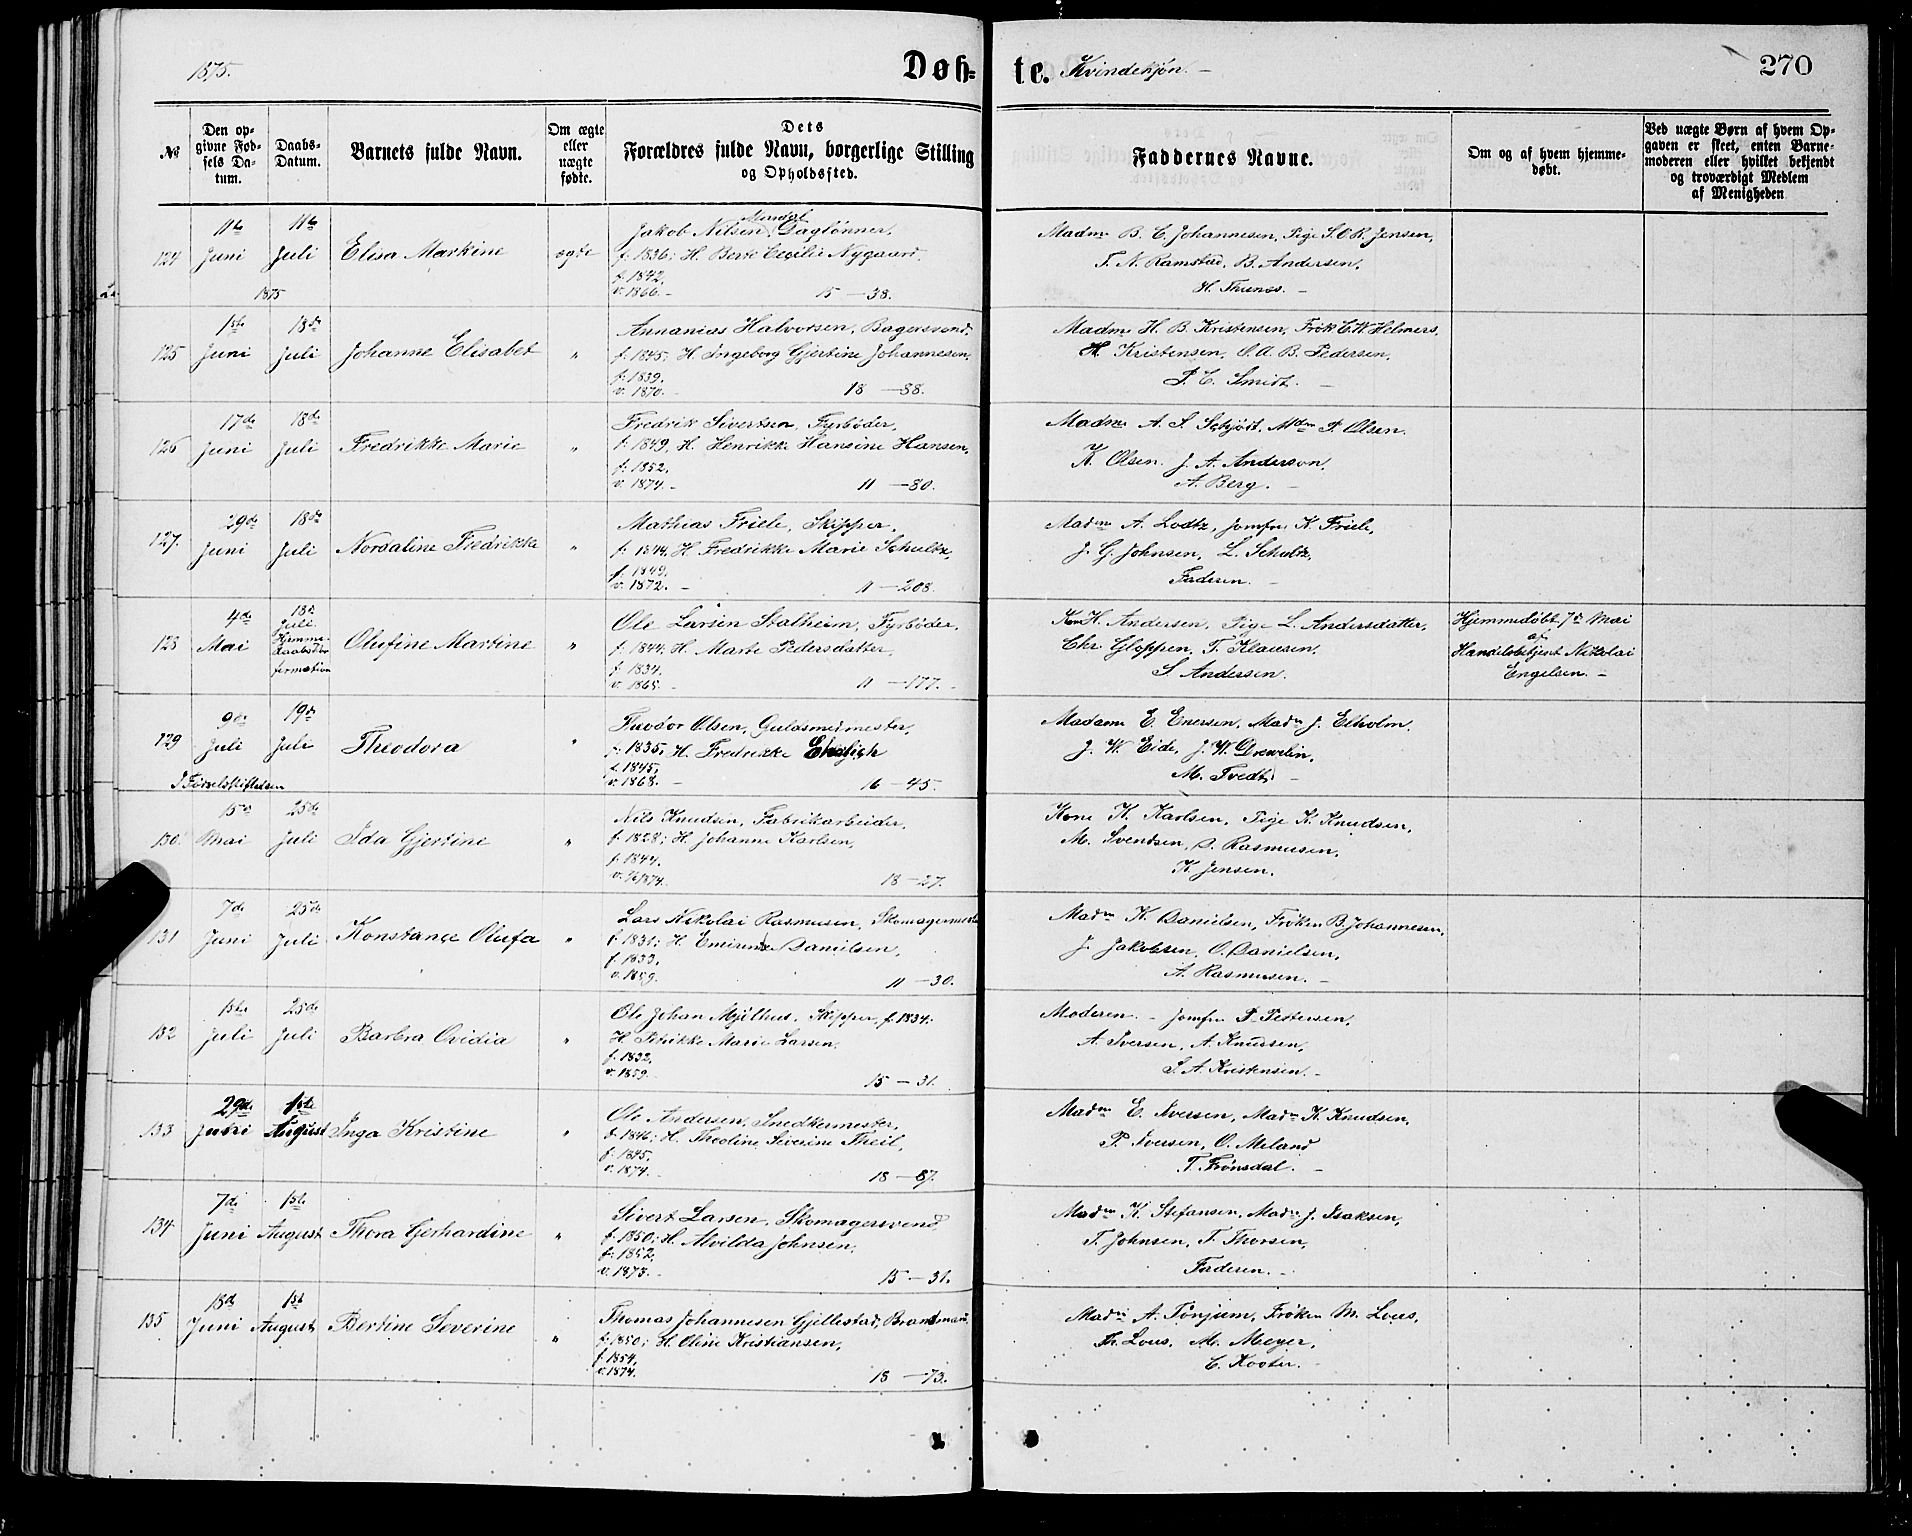 1875.
Døb=
te. Kvindekjøn. –
270
№
Den op-
givne Fød-
sels Da-
tum.
Daabs-
Datum.
Barnets fulde Navn.
Om ægte
eller
uægte
fødte.
Dets
Forældres fulde Navn, borgerlige Stilling
og Opholdssted.
Faddernes Navne.
Om og af hvem hjemme-
døbt.
Ved uægte Børn af hvem Op-
gaven er skeet, enten Barne-
moderen eller hvilket bekjendt
og troværdigt Medlem
af Menigheden
124
11te
Juni
11te
Juli
1875
Elisa Markine
ægte
Jakob Nilsen Mundal, Daglønner,
f. 1836; H. Berte Cecilie Nygaard,
f. 1842,
v. 1866. – 15 – 38.
Madme B. C. Johannesen, Pige S. O. R. Jensen,
T. N. Ramstad, B. Andersen,
H. Thunes. –
125
1ste
Juni
18de
Juli
Johanne Elisabet
"
Annanias Halvorsen, Bagersvend,
f. 1845, H. Ingeborg Gjertine Johannesen,
f. 1839.
v. 1870. – 18 – 88.
Madme H. B. Kristensen, Frøk C. W. Helmers,
H. Kristensen, O. A. B. Pedersen,
P. C. Smidt. –
126
17de
Juni
18de
Juli
Fredrikke Marie
"
Fredrik Sivertsen, Fyrbøder,
f. 1849, H. Henrikke Hansine Hansen,
f. 1852,
v. 1874. – 11 – 80.
Madme A. S. Schjødt, Mdm P. Olsen.
K. Olsen. J. A. Anderson,
A. Berg. –
127.
29de
Juni
18de
Juli
Nordaline Fredrikke
"
Mathias Friele, Skipper,
f. 1844, H. Fredrikke Marie Schultz,
f. 1849,
v. 1872. – 11 – 208.
Madm A. Lodtz, Jomfru K. Friele,
J. G. Johnsen, L. Schultz,
Faderen. –
128
4de
Mai
18de
Juli.
Hjemme-
daabs Con-
firmation
Olufine Martine
"
Ole Larsen Stalheim, Fyrbøder,
f. 1844, H. Marte Pedersdatter,
f. 1834.
v. 1865. – 11 – 177. –
Kone H. Andersen, Pige L. Andersdatter,
Chr Gloppen, T. Klausen,
S. Andersen.
Hjemmedøbt 7de Mai
af
Handelsbetjent Nikolai
Engelsen. –
129
9de
Juli
I Fødselsstiftelsen
19de
Juli
Theodora
"
Theodor Olsen, Guldsmedmester,
f. 1835, H. Fredrikke Ehrlich
f. 1845,
v. 1868. – 16 – 45.
Madame E. Enersen, Madm J. Elholm.
J. W. Eide, J. W. Drewelin,
M. Tvedt. –
130.
15de
Mai
25de
Juli
Ida Gjertine
"
Nils Knudsen, Fabrikarbeider,
f. 1828; H. Johanne Karlsen,
f. 1844.
v. 7/6 1874. 18 – 27.
Kone K. Karlsen, Pige K. Knudsen,
M. Svendsen, S. Rasmusen,
K. Jensen.
131
7de
Juni
25de
Juli
Konstance Olufa
"
Lars Nikolai Rasmusen, Skomagermester
f. 1831; H. Emiunde Danielsen,
f. 1833,
v. 1859. 11 – 30.
Madm K. Danielsen, Frøken B. Johannesen,
J. Jakobsen, O. Danielsen,
A. Rasmusen. –
132
1ste
Juli
25de
Juli
Barbra Ovidia
"
Ole Johan Mjelhus. Skipper, f. 1834.
H. Petrikke Marie Larsen.
f. 1832,
v. 1859. 15 – 31.
Moderen. – Jomfru P. Pettersen,
A. Iversen, A. Knudsen,
S. A. Kristensen. –
133
29de
Juni
1ste
August
Inga Kristine
"
Ole Andersen, Snedkermester,
f. 1846; H. Theoline Severine Theil,
f. 1845,
v. 1874. 18 – 87.
Madm E. Iversen, Madm K. Knudsen,
P. Iversen, O. Meland
T. Frønsdal. –
134
7de
Juni
1ste
August
Thora Gerhardine
"
Sivert Larsen, Skomagersvend
f. 1850; H. Alvilda Johnsen,
f. 1852,
v. 1873. – 15 – 31.
Madm K. Stefansen, Madm J. Isaksen,
T. Johnsen, T. Thorsen,
Faderen. –
135
18de
Juni
1ste
August
Bertine Severine
"
Thomas Johannesen Gjellestad, Brandmand
f. 1850; H. Oline Kristiansen,
f. 1854,
v. 1874. 18 – 73.
Madm A. Tønjum, Frøken M. Lous,
Th. Lous, M. Meyer,
C. Kooter.